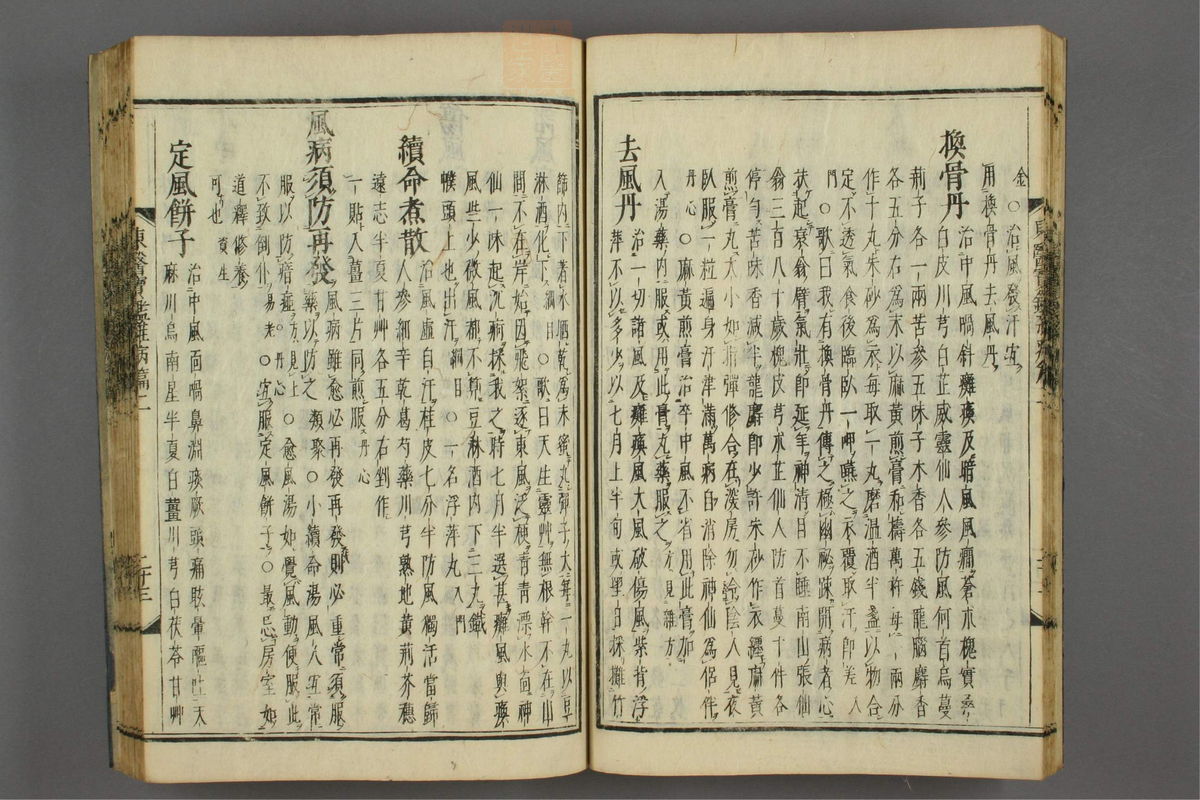 金○治風發汗宜
用換骨丹去風丹
換骨丹 治中風喎斜癱瘓及暗風風癇蒼朮槐實桑
白皮川芎白芷威靈仙人參防風何首烏蔓
荊子各一兩苦參五味子木香各五錢龍腦麝香
各五分右爲末以麻黃煎膏和擣萬杵每一兩分
作十丸朱砂爲衣每取一丸磨溫酒半盞以物合
定不透氣食後臨臥一呷嚥之衣覆取汗卽差入
門○歌曰我有換骨丹傳之極幽秘疎開病者心
扶起衰翁臂氣壯卽延年神清目不睡南山張仙
翁三百八十歲槐皮芎朮芷仙人防首蔓十件各
停勻苦味香減半龍麝卽少許朱砂作衣纏麻黃
煎膏丸大小如指彈修合在深房勿令陰人見夜
臥服一粒遍身汗津滿萬病自消除神仙爲侶伴
丹心○麻黃煎膏治卒中風不省用此膏加
入湯藥內服或用此膏丸藥服之方見雜方
去風丹 治一切諸風及癱瘓風大風破傷風紫背浮
萍不以多少以七月上半旬或望日採攤竹
篩內下著水晒乾爲末蜜丸彈子大每一丸以豆
淋酒化下綱目○歌曰天生靈艸無根幹不在山
間不在岸始因飛絮逐東風泛梗青青漂水面神
仙一味起沉疴採我之時七月半選甚癱風與瘓
風些少微風都不筭豆淋酒內下三丸鐵
幞頭上也出汗綱目○一名浮萍丸入門
續命煮散 治風虛自汗桂皮七分半防風獨活當歸
人參細辛乾葛芍藥川芎熟地黃荊芥穗
遠志半夏甘艸各五分右剉作
一貼入薑三片同煎服丹心
風病須防再發 風病雖愈必再發再發則必重常須服
藥以防之類聚○小續命湯風人宜常
服以防瘖瘂方見上○愈風湯如覺風動便服此
不致倒仆易老○丹心○宜服定風餅子○最忌房室如
道釋修養
可也資生
定風餅子 治中風面喎鼻淵痰厥頭痛眩暈嘔吐天
麻川烏南星半夏白薑川芎白茯苓甘艸
東醫寶鑑雜病篇二
二十三